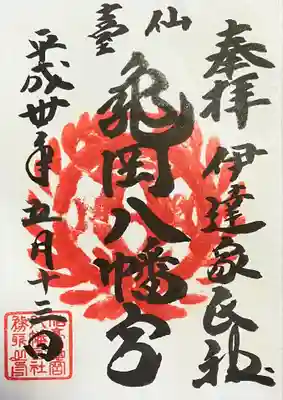 奉拝
伊達家氏社
仙臺
亀岡八幡宮
平成卅年五月十三日